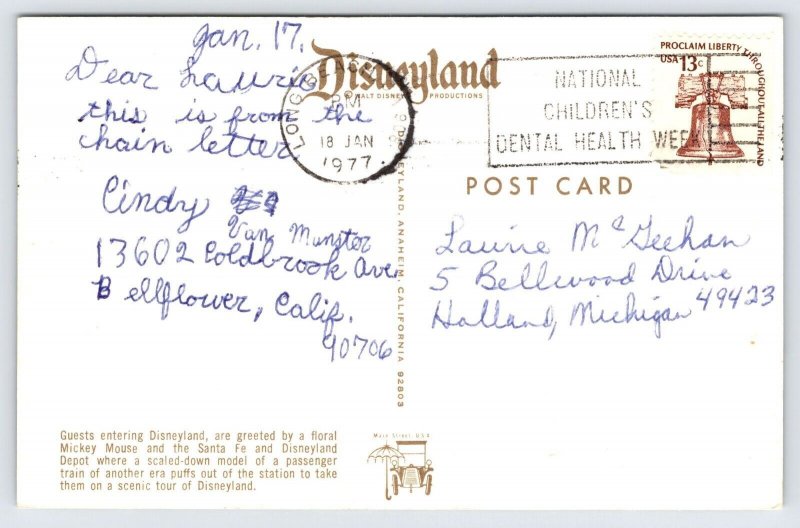 Jan. 17.
Dear Laurie
this is from the
chain letter
Cindy
Van Munster
13602 Coldbrook Ave.
Bellflower, Calif.
90706
Disneyland
WALT DISNEY PRODUCTIONS
LONG BEACH
PM
18 JAN
1977
NATIONAL
CHILDREN'S
DENTAL HEALTH WEEK
PROCLAIM LIBERTY THROUGHOUT ALL THE LAND
USA 13c
POST CARD
DISNEYLAND, ANAHEIM, CALIFORNIA 92803
Laurie McGeehan
5 Bellwood Drive
Holland, Michigan 49423
Guests entering Disneyland, are greeted by a floral
Mickey Mouse and the Santa Fe and Disneyland
Depot where a scaled-down model of a passenger
train of another era puffs out of the station to take
them on a scenic tour of Disneyland.
Main Street, U.S.A.